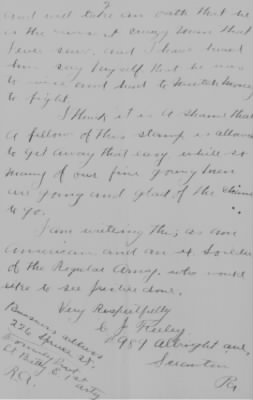 2
and will take an oath that he
is the nearest crazy man that
I ever saw, and I have heard
him say myself that he was
to and had to much money
to fight.
I think it is a shame that
a fellow of this stamp is allowed
to get away that easy, while so
many of our fine young men
are going and glad of the chance
to go.
I am writeing this, as an
American and an ex. Soldier
of the Regular Army, who would
like to see justice done.
Very Respectfully
C J
989 Albright ave,
Scranton
Pa
Business address
226 Spruce St,
Formerly
Batty E 1st
R.A. Arty